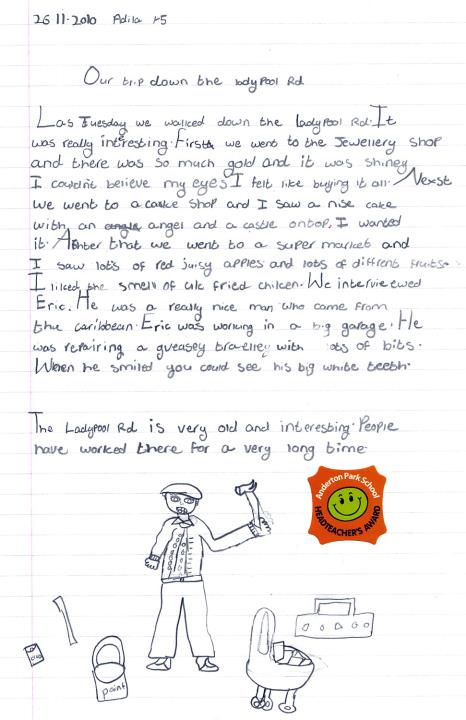 26·11·2010 Adila Y5
Our trip down the ladypool Rd
Las Tuesday we walked down the ladypool Rd. It
was really intresting. First we went to the Jewellery shop
and there was so much gold and it was shiney
I couldn't believe my eyes I felt like buying it all. Nexst
we went to a cake shop and I saw a nise cake
with an angel and a castle ontop. I wanted
it. After that we went to a super market and
I saw lots of red juisy apples and lots of diffrent fruits.
I liked the smell of fried chiken. We interviewed
Eric. He was a really nice man who came from
the caribbean. Eric was working in a big garage. He
was repairing a greasey with lots of bits.
When he smiled you could see his big white teeth.
The Ladypool Rd is very old and interesting. People
have worked there for a very long time.
Anderton Park School
HEADTEACHER'S AWARD
paint